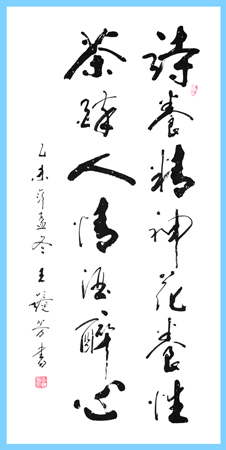 詩養精神花養性
茶醉人情酒醉心
乙未年孟冬王芳書